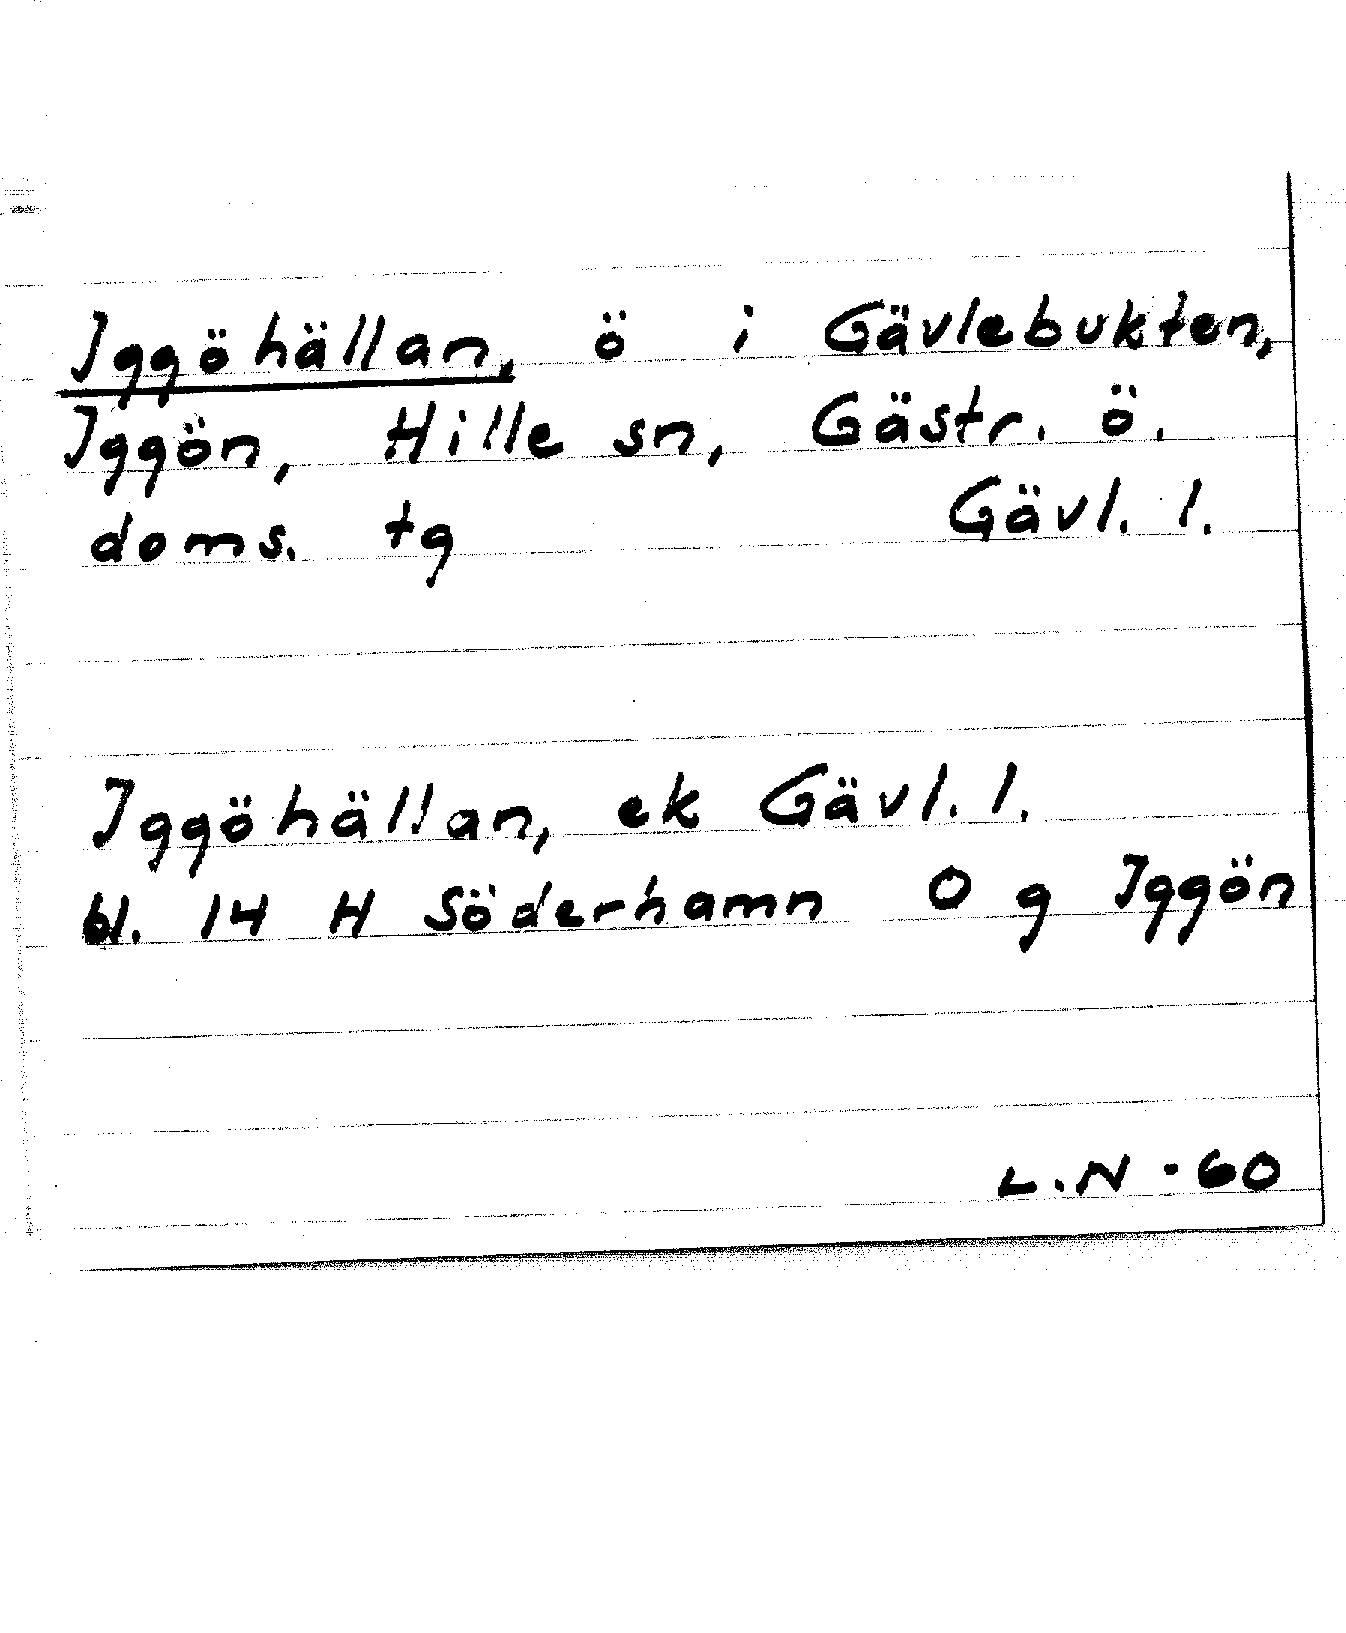 Iggöhällan, ö i Gävlebukten,
Iggön, Hille sn, Gästr. ö.
doms. tg Gävl. l.
Iggöhällan, ek Gävl. l.
bl. 14 H Söderhamn O g Iggön
L.N -60